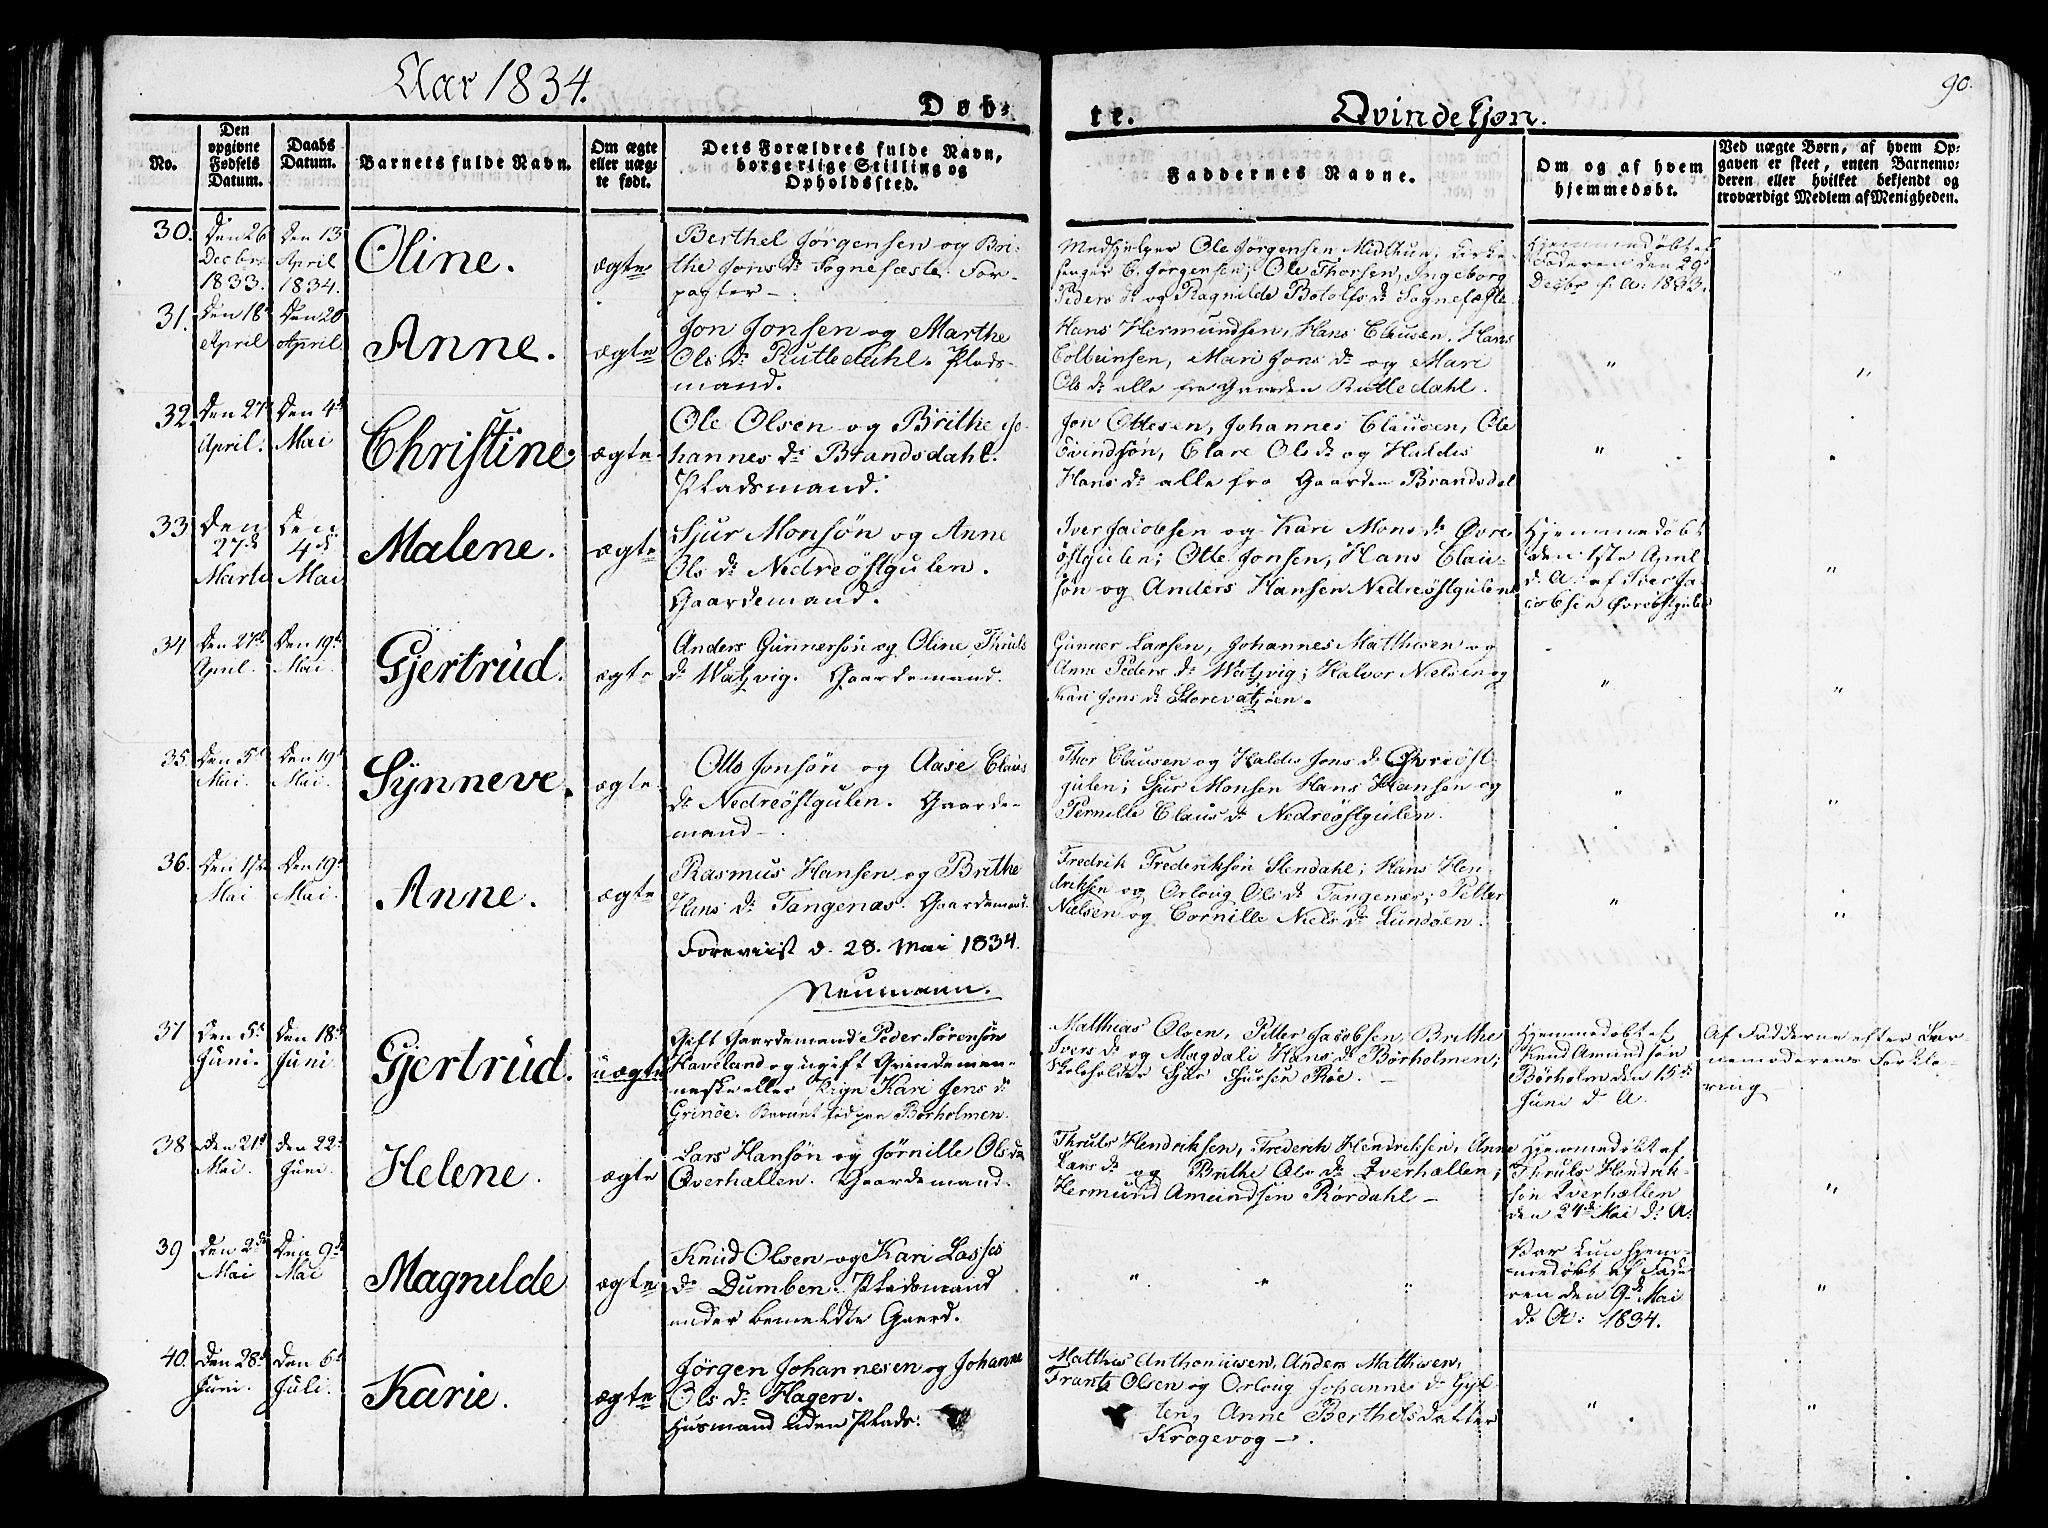 Aar 1834.
Døb-
te.
Qvindekjøn.
90.
No.
Den
opgivne
Fødsels
Datum.
Daabs
Datum.
Barnets fulde Navn.
Om ægte
eller uæg-
te født.
Dets Forældres fulde Navn,
borgerlige Stilling og
Opholdssted.
Faddernes Navne.
Om og af hvem
hjemmedøbt.
Ved uægte Børn, af hvem Op-
gaven er skeet, enten Barnemo-
deren eller hvilket bekjendt og
troværdigt Medlem af Menigheden.
30.
Den 26
Decbr
1833.
Den 13
April
1834.
Oline.
ægte
Berthel Jørgensen og Bri-
the Jons d. Sognefæste. For-
pagter
Medhjelper Ole Jørgensen Midthun, Kirke-
senger C. Jørgensen, Ole Thorsen, Ingeborg
Peders d. og Ragnilde Botolfs d. Sognefæste
Hjemmedøbt af
Faderen den 29
Decbr f. A. 1833.
31.
Den 18
April
Den 20
April.
Anne.
ægte
Jon Jonsen og Marthe
Ols d. Rutledahl. Plads-
mand.
Hans Hermundsen, Hans Clausen, Hans
Colbeinsen, Mari Jons d. og Mari
Ols d. alle fra Gaarden Rutledahl.
32.
Den 27
April.
Den 4d
Mai
Christine.
ægte
Ole Olsen og Brithe Jo-
hannes d. Brandsdahl.
Pladsmand.
Jon Ottesen, Johannes Clausen, Ole
Evindsøn, Clare Ols d. og Haldis
Hans d. alle fra Gaarden Brandsdal
33
Den
27d
Marti
Den
4d
Mai
Malene.
ægte
Sjur Monsøn og Anne
Ols d. Nedreøstgulen.
Gaardemand.
Iver Jacobsen og Kari Mons d. Øvre-
østgulen; Otte Jonsen, Hans Clau-
søn og Anders Hansen Nedreøstgulen
Hjemmedøbt
den 1ste April
d. A. af Iver Ja-
cobsen Øvreøstgulen
34
Den 27d
April.
Den 19d
Mai.
Gjertrud.
ægte
Anders Gunnersøn og Oline Thruls
d. Watzvig. Gaardemand.
Gunner Larsen, Johannes Matthisen og
Anne Peders d. Watzvig; Halvor Nielsen og
Kari Jons d. Storevatzøen.
35.
Den 5d
Mai.
Den 19d
Mai.
Synneve.
ægte
Otto Jonsøn og Aase Claus
d. Nedreøstgulen. Gaarde-
mand
Thor Clausen og Haldis Jons d. Øvreøst-
gulen; Sjur Monsen Hans Hansen og
Pernille Claus d. Nedreøstgulen.
36.
Den 1ste
Mai
Den 19d
Mai.
Anne.
ægte
Rasmus Hansen og Brithe
Hans d. Tangenæs. Gaardemand.
Fredrik Frederiksøn Stendahl; Hans Hen-
driksen og Orloug Ols d. Tangenæs; Petter
Nielsen og Cornille Niels d. Lundøen.
Foreviist d. 28. Mai 1834.
Neumann.
37
Den 5d
Juni.
Den 18d
Juni
Gjertrud.
uægte
Gift Gaardemand Peder Sørensøn
Haveland og ugift Qvindemen-
neske eller Pige Kari Jens d.
Grinøe. Barnet født paa Børholmen.
Matthias Olsen, Petter Jacobsen, Brithe
Ivers d. og Magdali Hans d. Børholmen;
Skoleholder Sjur Sjursen Røe.
Hjemmedøbt af
Knud Amundsøn
Børholm den 15de
Juni d. A.
Af Fadderne efter Bar-
nemoderens Forkla-
ring
38
Den 21d
Mai.
den 22d
Juni.
Helene.
ægte
Lars Hansøn og Jørnille Ols d.
Qverhællen. Gaardemand.
Thruls Hendriksen, Frederik Hendriksen, Anne
Lars d. og Brithe Ols d. Qverhællen;
Hermund Amundsen Rørdahl
Hjemmedøbt af
Thruls Hendrik-
søn Qverhællen
den 24d Mai d. A.
39
Den 2de
Mai
Den 9d
Mai
Magnilde
ægte
Knud Olsen og Kari Lasses
d. Dumben. Pladsmand
under bemeldte Gaard.
Var kun hjem-
medøbt af Fade-
ren den 9d Mai
d. A. 1834.
40.
Den 28d
Juni.
Den 6d
Juli.
Karie.
ægte
Jørgen Johannesen og Johanne
Ols d. Hagen.
Husmand uden Plads.
Matthis Anthoniusen, Anders Mathisen,
Frantz Olsen og Orloug Johannes d. Gyl-
ten, Anne Berthels datter
Krogevog.